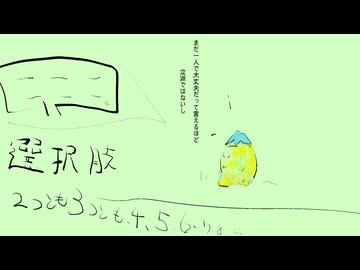 まだ一人で大丈夫だって言えるほど
立派ではないし
選択肢
2つとも3つとも、4、5、6、